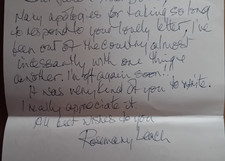 Many apologies for taking so long
to respond to your lovely letter, I've
been out of the country almost
incessantly with one thing or
another. I'm off again soon!!
It was very kind of you to write.
I really appreciate it.
All best wishes to you
Rosemary Leach